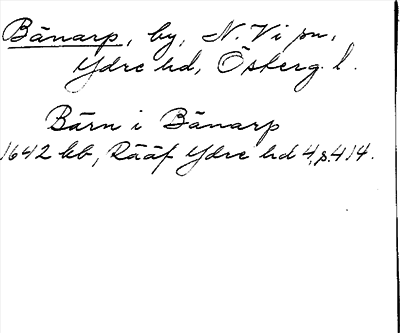 Bänarp, by, N. Vi sn,
Ydre hd, Österg. l.
Bärn i Bänarp
1642 kb, Rääf Ydre hd 4, s. 414.